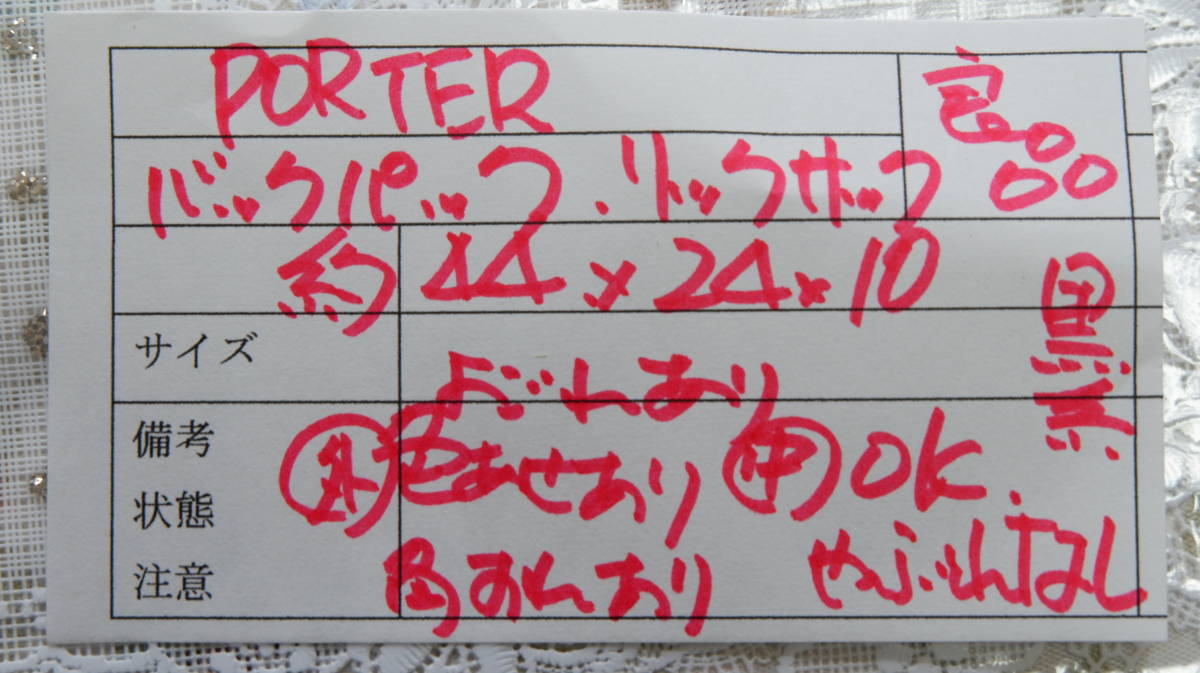 PORTER
良品
バックパック.リックサック
約 44×24×10
黒系
サイズ
よごれあり
備考
状態
注意
外 色あせあり 中 OK.
角すれあり やぶれなし